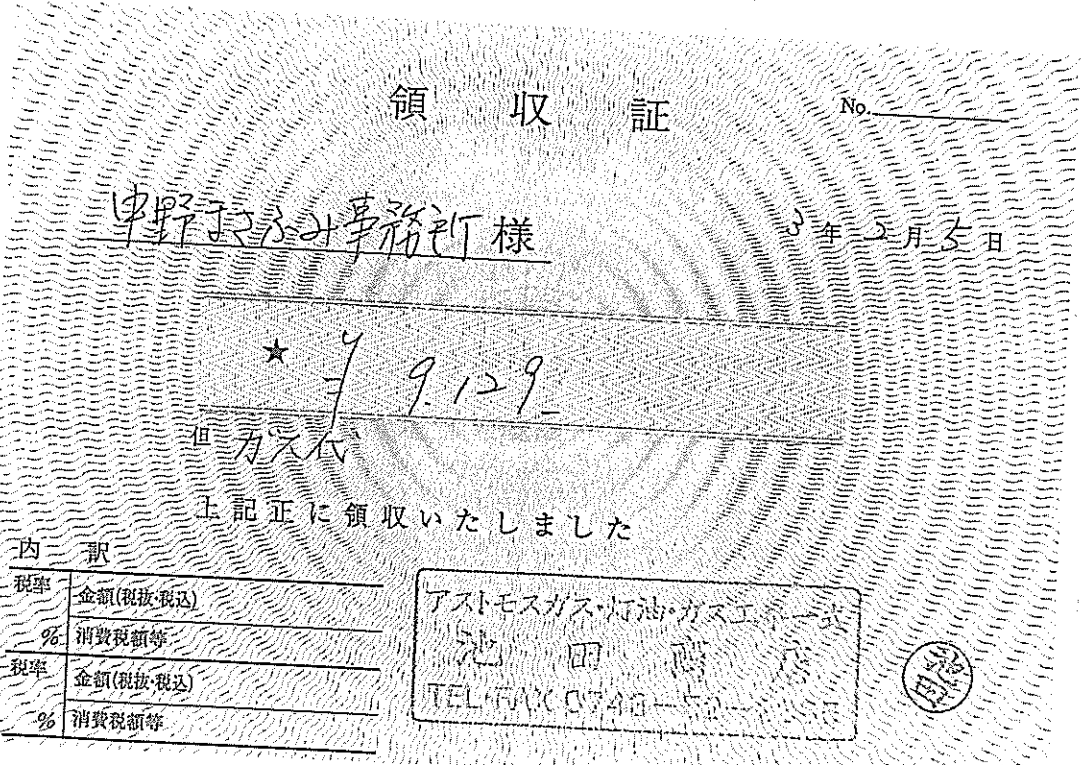 領収証
No.
中野まさふみ事務所 様
3年2月5日
★ ¥9.129-
但 ガス代
上記正に領収いたしました
内訳
税率
金額(税抜・税込)
% 消費税額等
税率
金額(税抜・税込)
% 消費税額等
アストモスガス・灯油・ガス工事一式
池田商店
TEL・FAX 0748-52-
池田